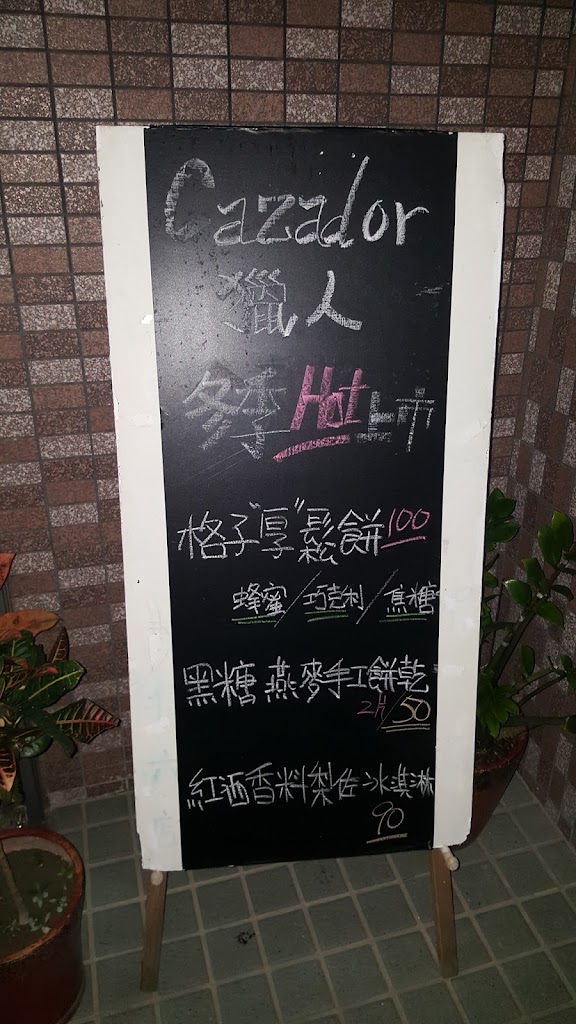 Cazador
獵人
冬季Hot上市
格子"厚"鬆餅100
蜂蜜/巧克利/焦糖
黑糖燕麥手工餅乾
2片/50
紅酒香料梨佐冰淇淋
90